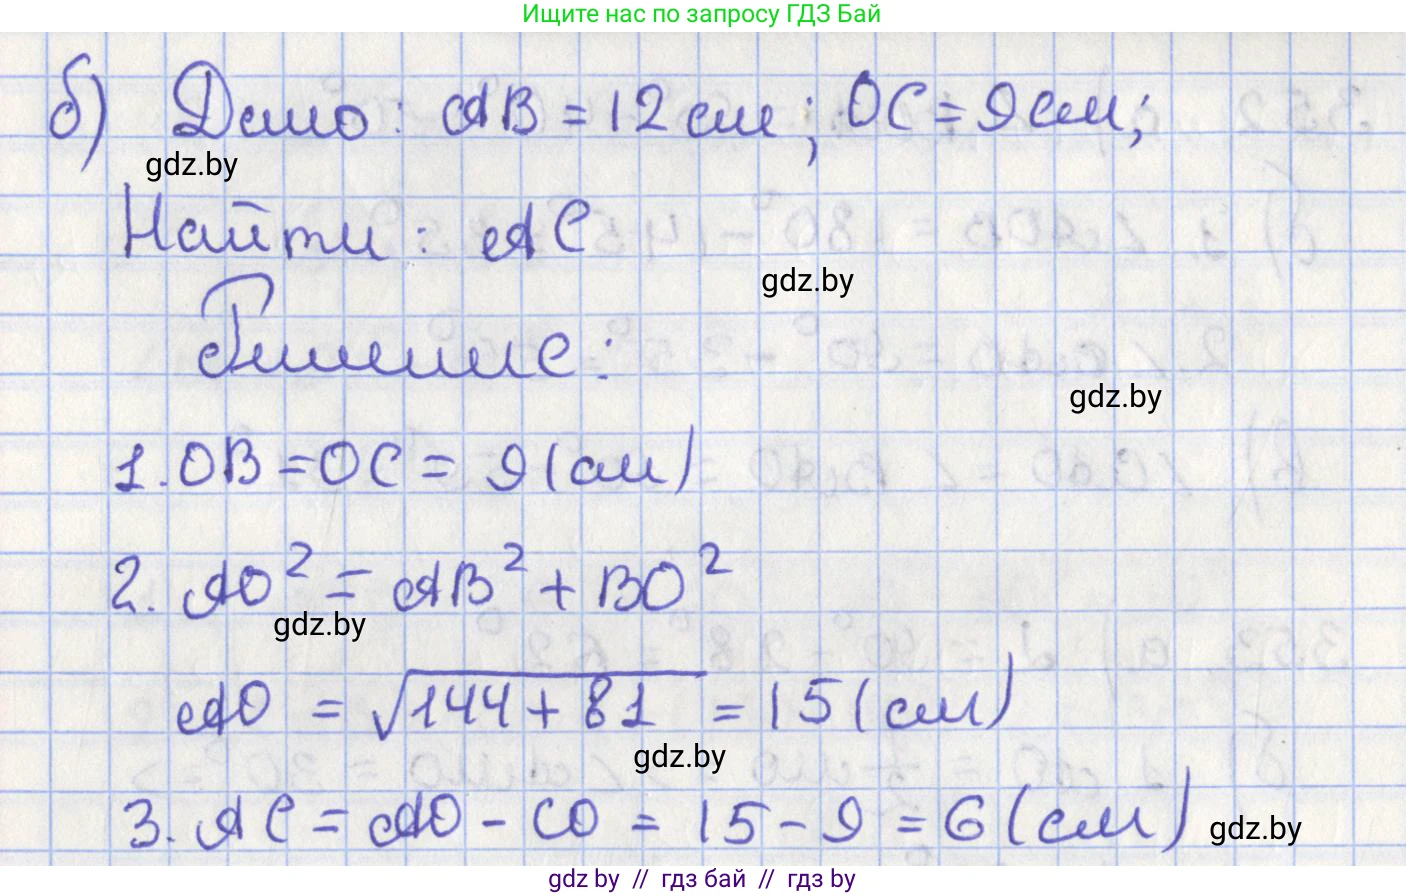 Ищите нас по запросу ГДЗ Бай
б) Дано: AB = 12 см; OC = 9 см;
gdz.by
Найти: AC
gdz.by
Решение:
gdz.by
1. OB = OC = 9 (см)
2. AO² = AB² + BO²
gdz.by
AO = √144 + 81 = 15 (см)
gdz.by
3. AC = AO - CO = 15 - 9 = 6 (см)
gdz.by
gdz by // гдз бай // гдз by